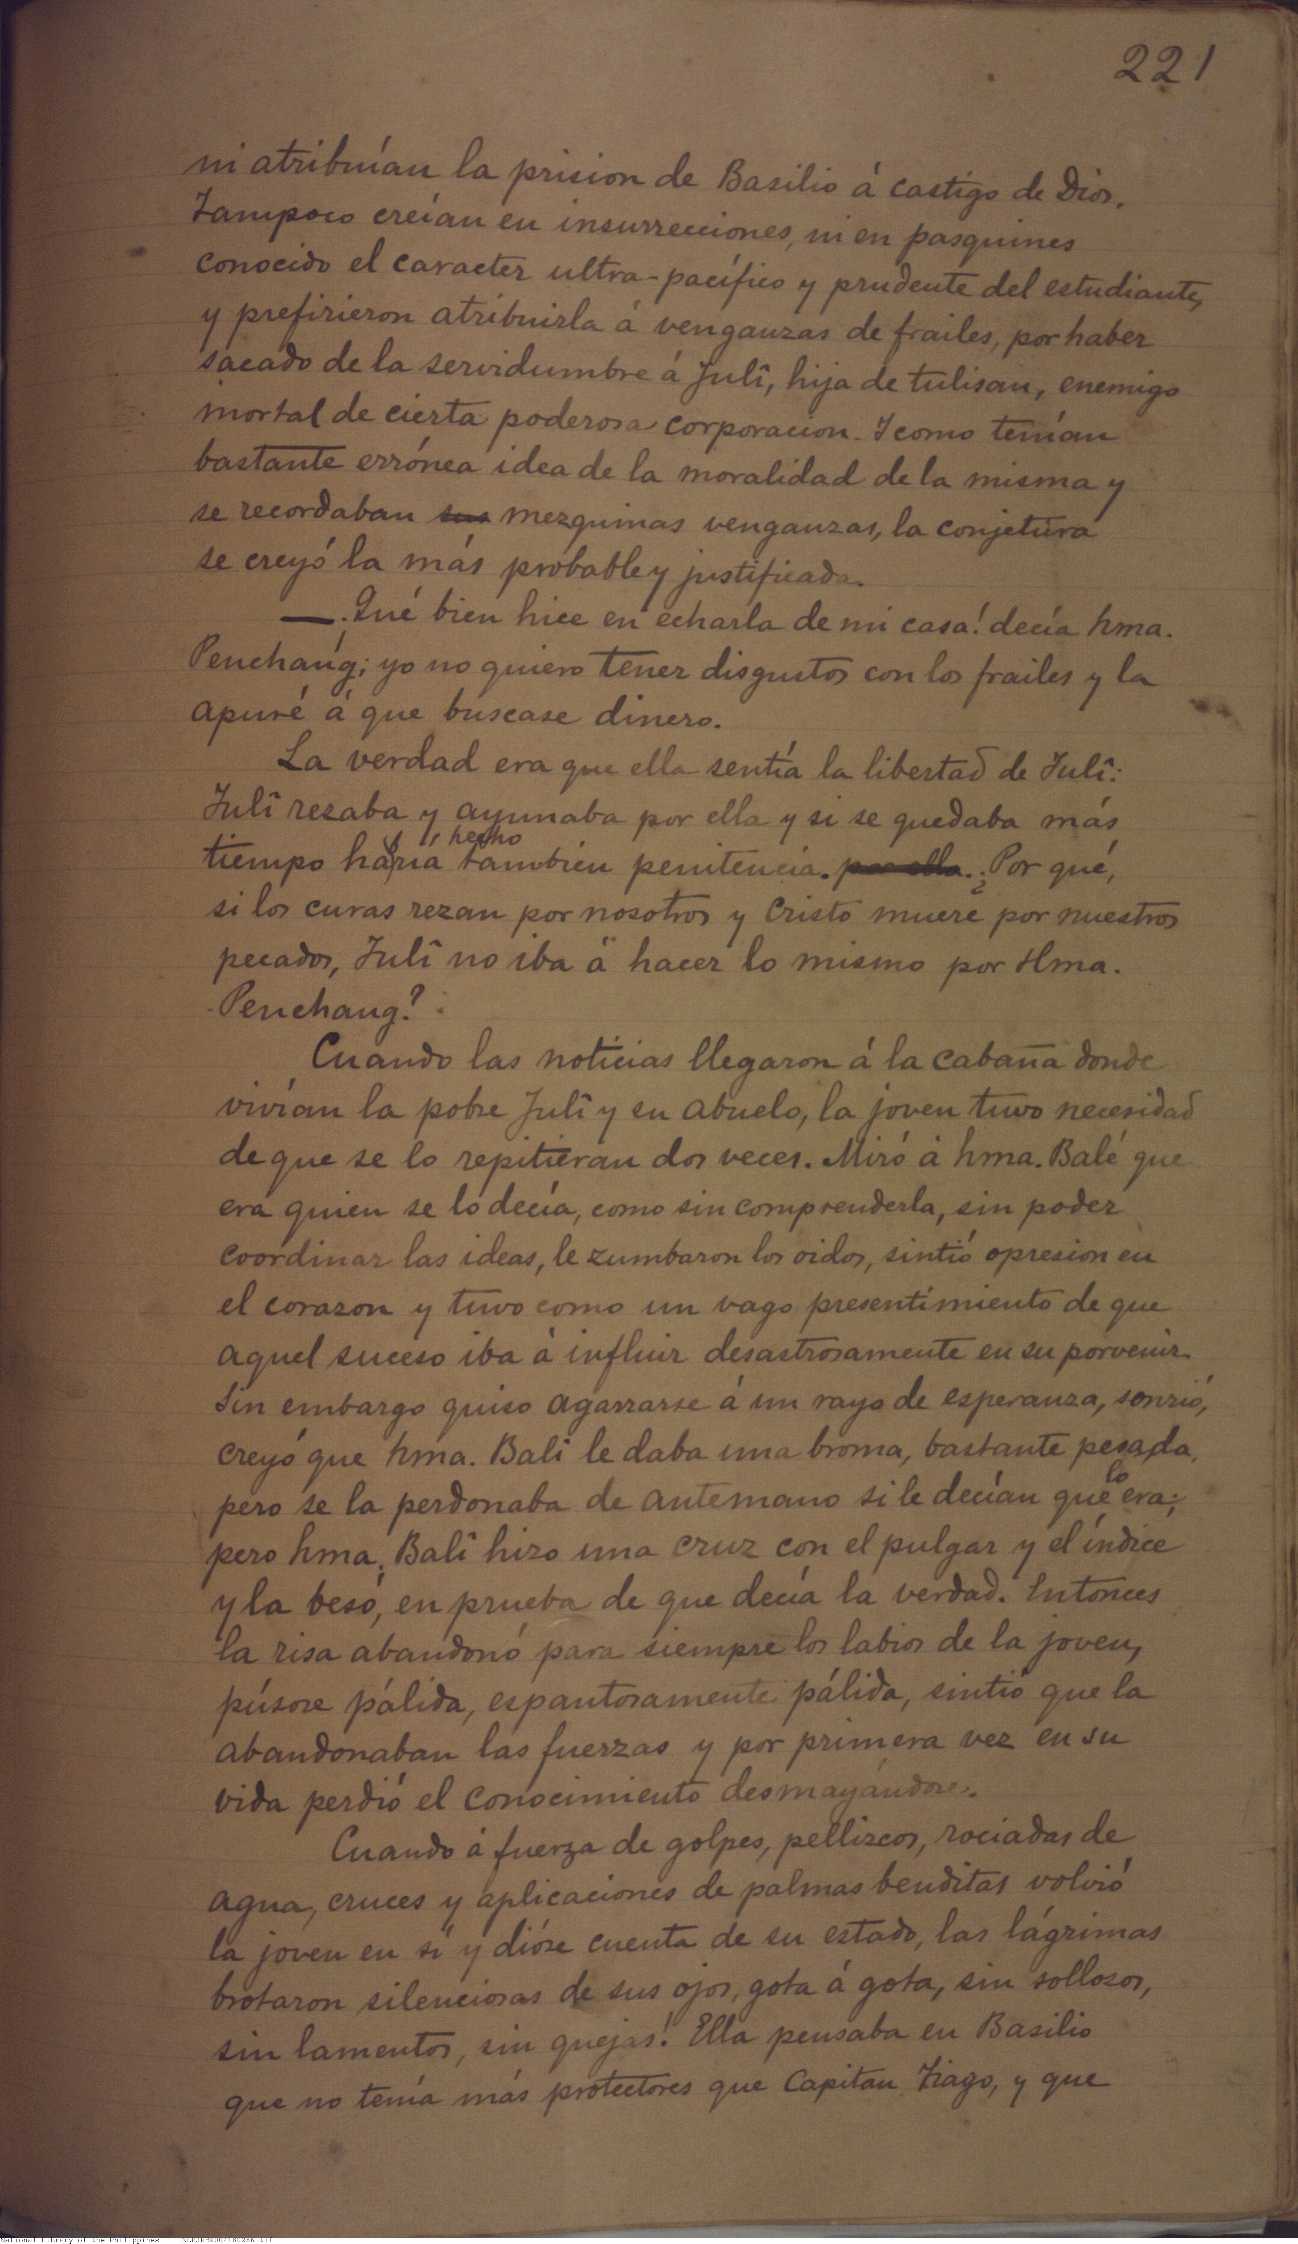 221
ni atribuían la prision de Basilio á castigo de Dios.
Tampoco creían en insurrecciones, ni en pasquines
conocido el caracter ultra-pacífico y prudente del estudiante,
y prefirieron atribuirla á venganzas de frailes, por haber
sacado de la servidumbre á Julî, hija de tulisan, enemigo
mortal de cierta poderosa corporacion. Y como tenían
bastante errónea idea de la moralidad de la misma y
se recordaban sus mezquinas venganzas, la conjetura
se creyó la más probable y justificada.
—¡Qué bien hice en echarla de mi casa! decía hma.
Penchang; yo no quiero tener disgustos con los frailes y la
apuré á que buscase dinero.
La verdad era que ella sentía la libertad de Julî:
Julî rezaba y ayunaba por ella y si se quedaba más
hecho
tiempo haría también penitencia. por ella. ¿Por qué,
si los curas rezan por nosotros y Cristo muere por nuestros
pecados, Julî no iba á hacer lo mismo por Hma.
Penchang?
Cuando las noticias llegaron á la cabaña donde
vivían la pobre Julî y su abuelo, la joven tuvo necesidad
de que se lo repitieran dos veces. Miró á hma. Balé que
era quien se lo decía, como sin comprenderla, sin poder
coordinar las ideas, le zumbaron los oidos, sintió opresion en
el corazon y tuvo como un vago presentimiento de que
aquel suceso iba á influir desastrosamente en su porvenir.
Sin embargo quiso agarrarse á un rayo de esperanza, sonrió,
creyó que hma. Balî le daba una broma, bastante pesada,
lo
pero se la perdonaba de antemano si le decían que era;
pero hma. Balî hizo una cruz con el pulgar y el índice
y la besó, en prueba de que decía la verdad. Entonces
la risa abandonó para siempre los labios de la joven,
púsose pálida, espantosamente pálida, sintió que la
abandonaban las fuerzas y por primera vez en su
vida perdió el conocimiento desmayándose.
Cuando á fuerza de golpes, pellizcos, rociadas de
agua, cruces y aplicaciones de palmas benditas volvió
la joven en sí y dióse cuenta de su estado, las lágrimas
brotaron silenciosas de sus ojos, gota á gota, sin sollozos,
sin lamentos, sin quejas! Ella pensaba en Basilio
que no tenía más protectores que Capitan Tiago, y que
National Library of the Philippines